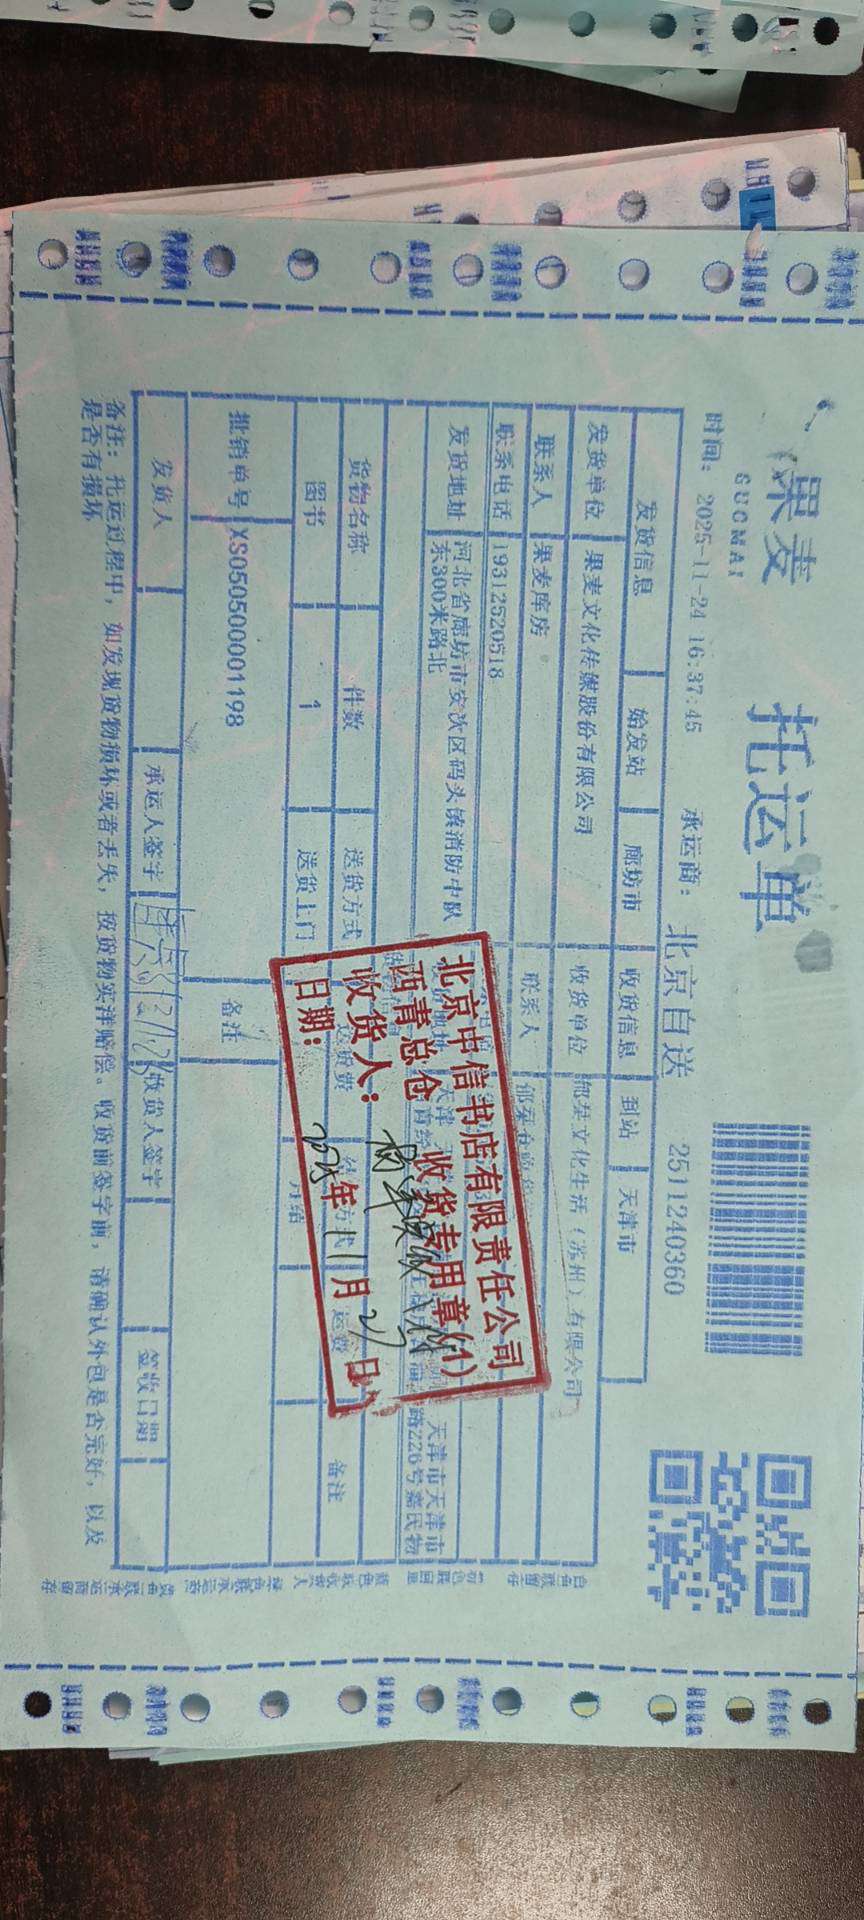 果麦
GUOMAI
托运单
2511240360
时间：2025-11-24 16:37:45 承运商：北京自送
发货信息 始发站 廊坊市 收货信息 到站 天津市
发货单位 果麦文化传媒股份有限公司 收货单位 有限公司
联系人 果麦库房 联系人
联系电话 19312520518
发货地址 河北省廊坊市安次区码头镇消防中队
东300米路北
天津市天津市
路226号嘉民物
货物名称 件数 送货方式 送货费 方式 运费 备注
图书 1 送货上门 月结
批销单号 XS050500001198 备注
发货人 承运人签字 收货人签字 签收日期
备注：托运过程中，如发现货物损坏或者丢失，按货物实洋赔偿。收货前签字前，请确认外包是否完好，以及
是否有损坏
北京中信书店有限责任公司
西青总仓 收货专用章(1)
收货人：
日期： 2025年11月27日